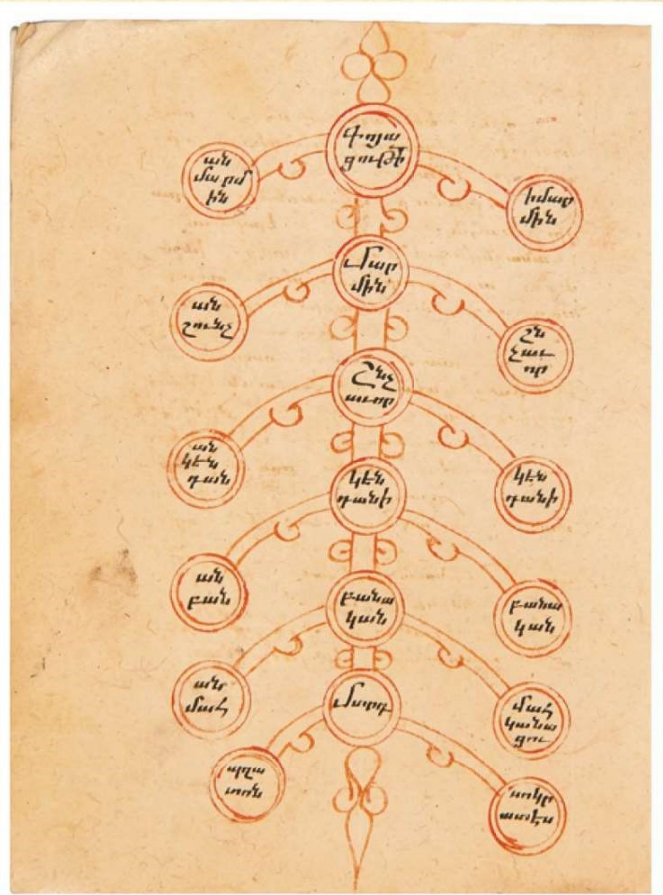 Գոյա
ցութի
ան
մարմ
ին
իմար
մին
Մար
մին
ան
շունչ
շն
չաւ
որ
Շնչ
աւոր
ան
կէն
դան
կէն
դանի
կէն
դանի
ան
բան
բանա
կան
բանա
կան
ան
մահ
մահ
կանա
ցու
Մարդ
պղա
տոն
սոկր
ատէս